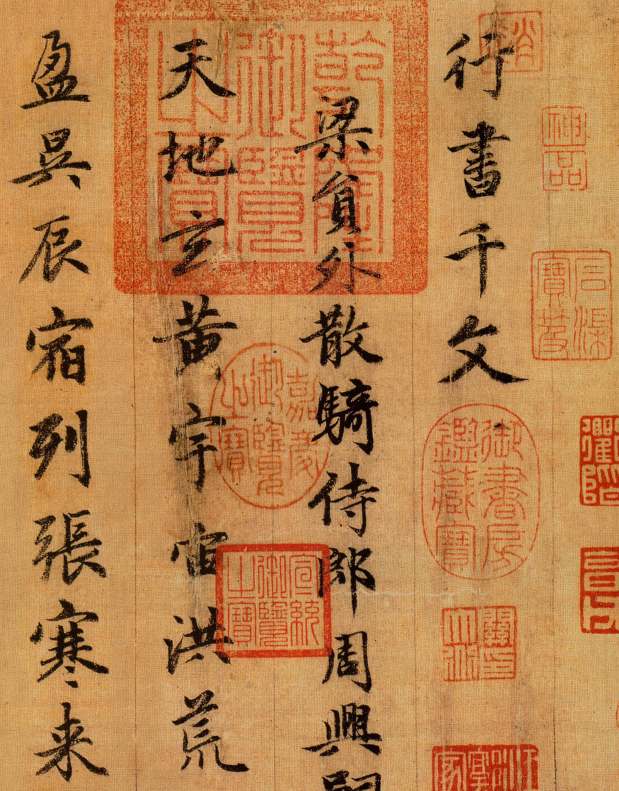 行書千文
梁貟外散騎侍郎周興嗣
天地玄黄宇宙洪荒
盈昃辰宿列張寒来
神品
石渠寶笈
御書房鑑藏寶
乾隆御覽之寶
嘉慶御覽之寶
宣統御覽之寶